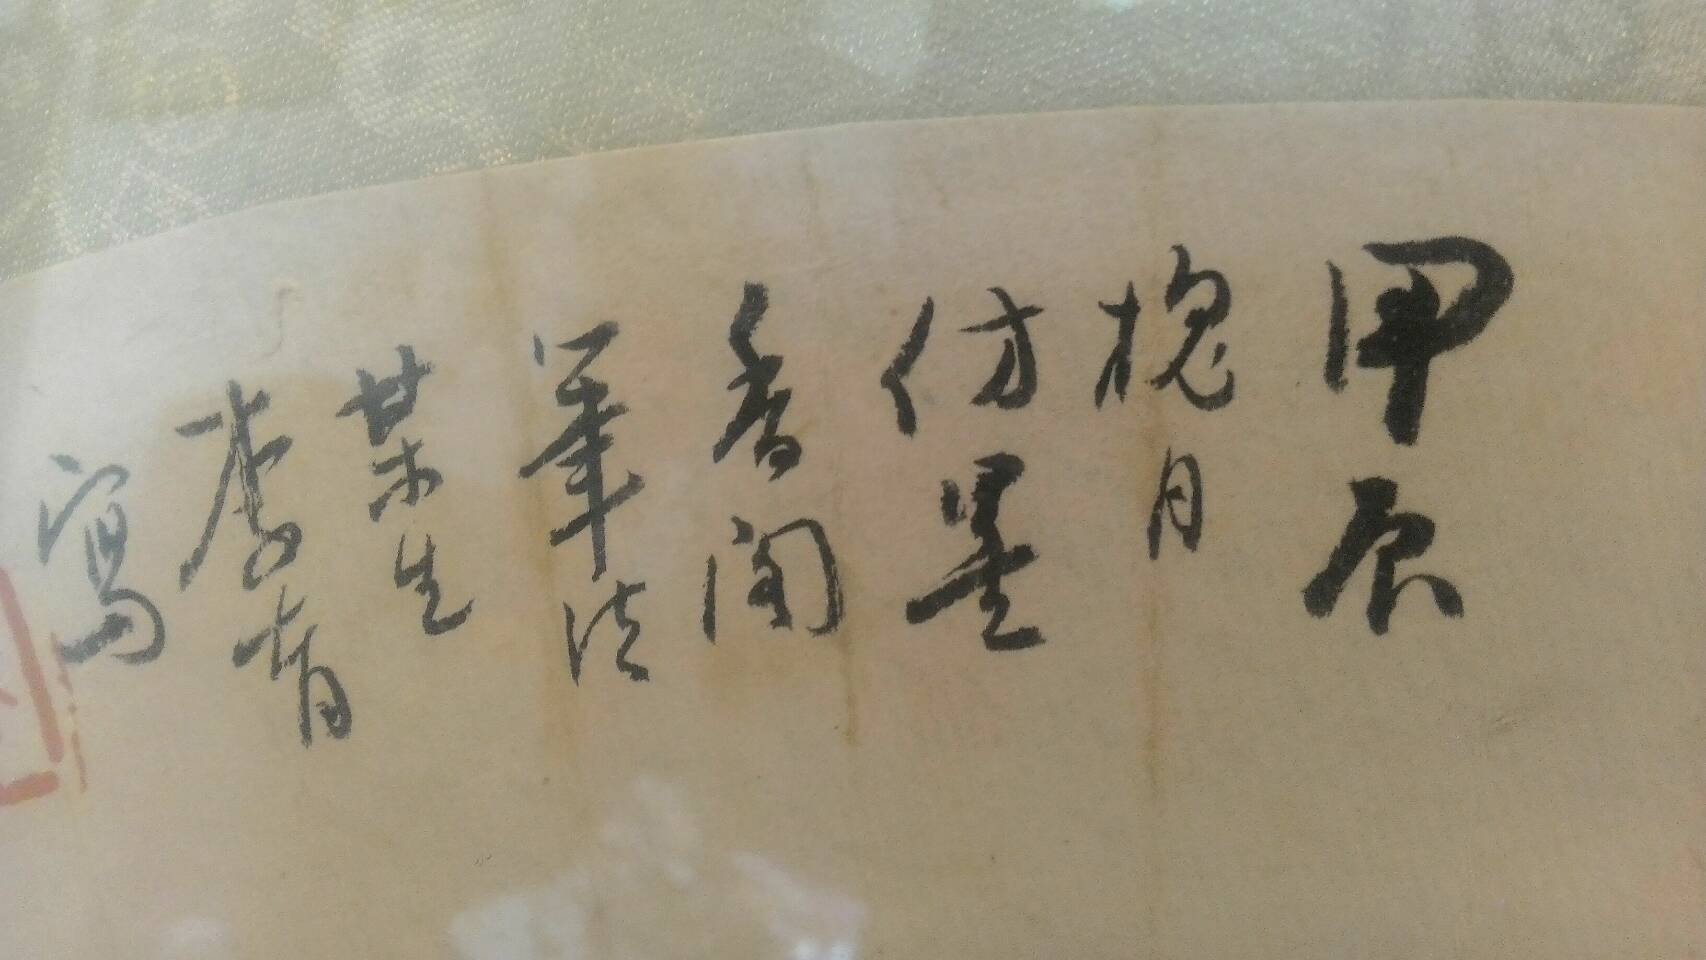 甲辰
槐月
仿墨
香閣
筆法
某生
李育
寫